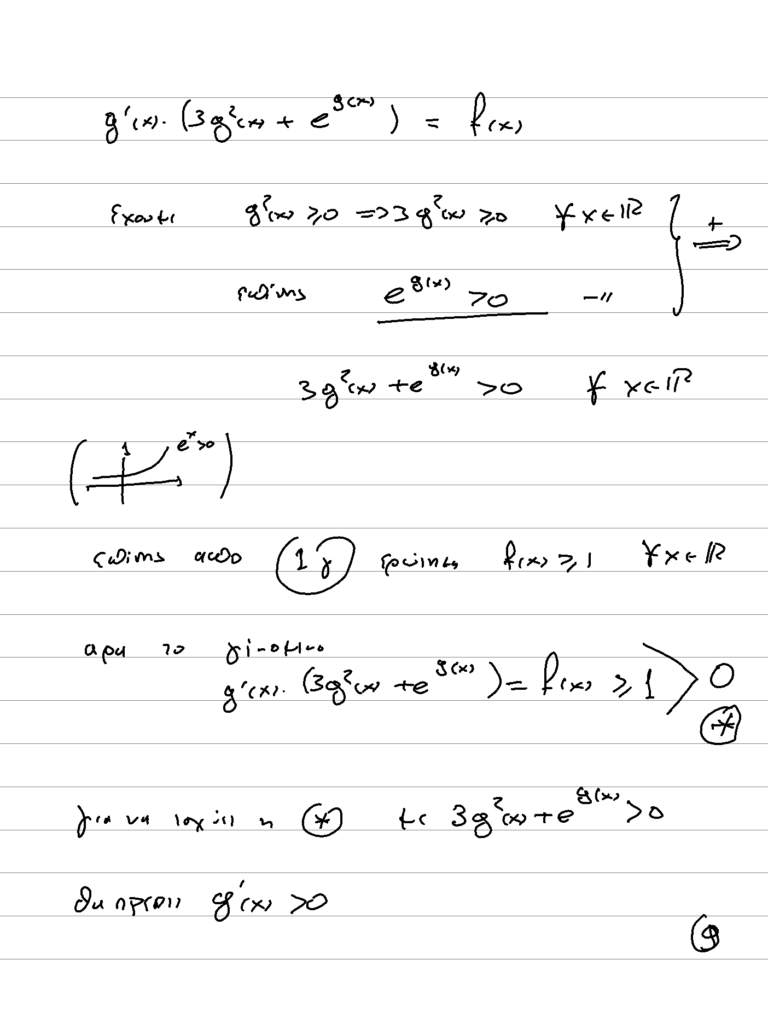 g'(x)·(3g²(x) + e^{g(x)}) = f(x)
έχουμε g²(x) ≥ 0 => 3g²(x) ≥ 0 ∀ x ∈ ℝ } +⟹
επίσης e^{g(x)} > 0 -//
3g²(x) + e^{g(x)} > 0 ∀ x ∈ ℝ
( e^x > 0 )
επίσης από 1γ έχουμε f(x) ≥ 1 ∀ x ∈ ℝ
αρα το γινομενο
g'(x)·(3g²(x) + e^{g(x)}) = f(x) ≥ 1 > 0 (*)
για να ισχύει η (*) με 3g²(x) + e^{g(x)} > 0
θα πρεπει g'(x) > 0
9